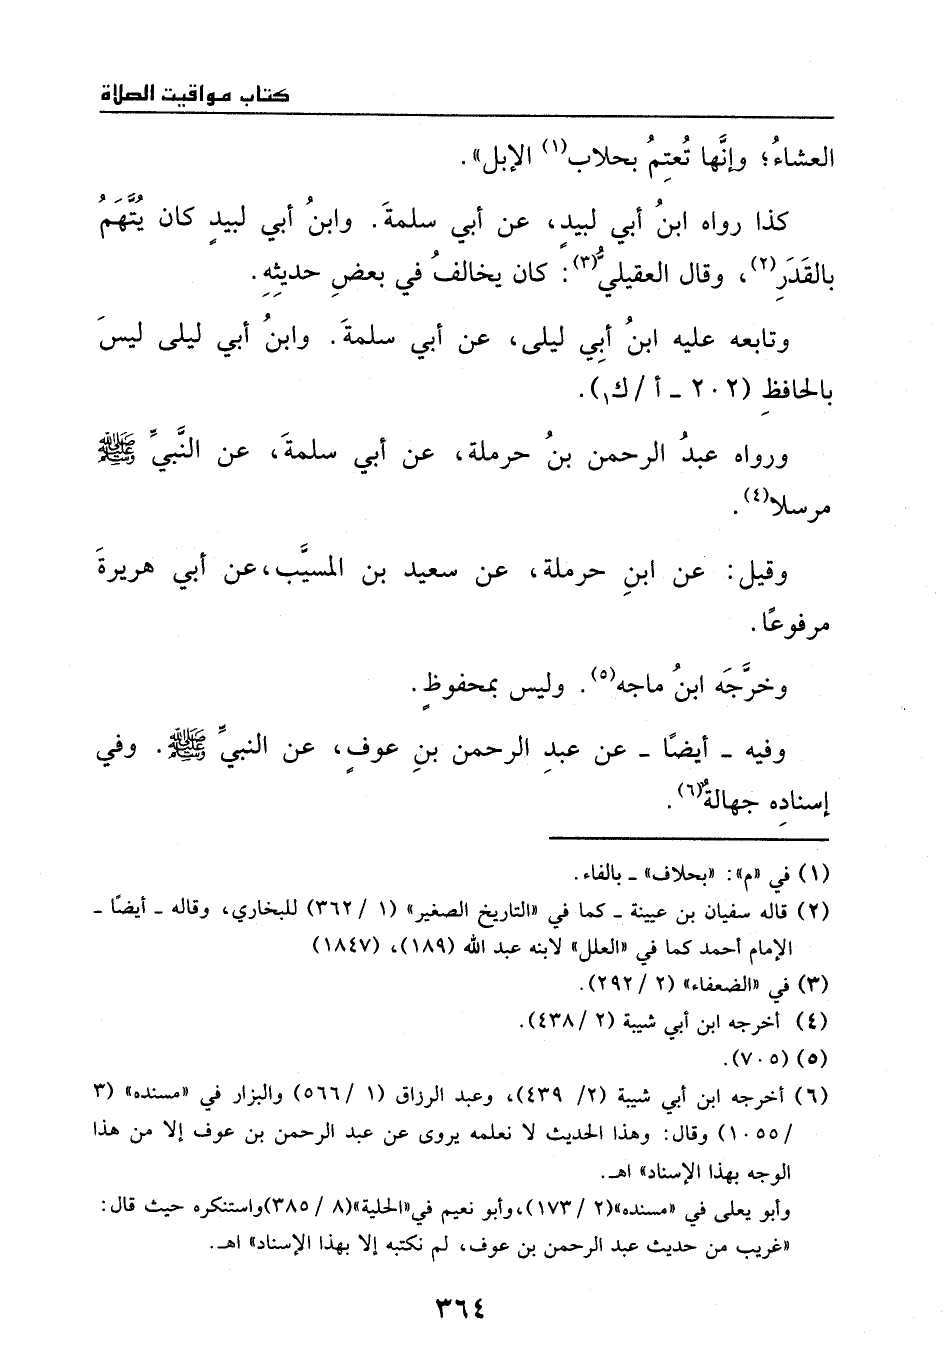 كتاب مواقيت الصلاة
العشاءُ؛ وإنَّها تُعتِمُ بحلاب(١) الإبل».
كذا رواه ابنُ أبي لبيدٍ، عن أبي سلمةَ. وابنُ أبي لبيدٍ كان يُتَّهَمُ
بالقَدَرِ(٢)، وقال العقيليُّ(٣): كان يخالفُ في بعضِ حديثِهِ.
وتابعه عليه ابنُ أبِي ليلى، عن أبي سلمةَ. وابنُ أبي ليلى ليسَ
بالحافظِ (٢٠٢ - أ / ك١).
ورواه عبدُ الرحمن بنُ حرملة، عن أبي سلمةَ، عن النَّبيِّ ﷺ
مرسلا(٤).
وقيل: عن ابنِ حرملة، عن سعيد بن المسيَّب،عن أبي هريرةَ
مرفوعًا.
وخرَّجَه ابنُ ماجه(٥). وليس بمحفوظٍ.
وفيه - أيضًا - عن عبدِ الرحمن بنِ عوفٍ، عن النبيِّ ﷺ. وفي
إسنادِه جهالةٌ(٦).
(١) في «م»: «بحلاف» - بالفاء.
(٢) قاله سفيان بن عيينة - كما في «التاريخ الصغير» (١ / ٣٦٢) للبخاري، وقاله - أيضًا -
الإمام أحمد كما في «العلل» لابنه عبد الله (١٨٩)، (١٨٤٧)
(٣) في «الضعفاء» (٢ / ٢٩٢).
(٤) أخرجه ابن أبي شيبة (٢ / ٤٣٨).
(٥) (٧٠٥).
(٦) أخرجه ابن أبي شيبة (٢/ ٤٣٩)، وعبد الرزاق (١ / ٥٦٦) والبزار في «مسنده» (٣
/ ١٠٥٥) وقال: وهذا الحديث لا نعلمه يروى عن عبد الرحمن بن عوف إلا من هذا
الوجه بهذا الإسناد» اهـ.
وأبو يعلى في «مسنده»(٢ / ١٧٣)،وأبو نعيم في«الحلية»(٨ / ٣٨٥)واستنكره حيث قال:
«غريب من حديث عبد الرحمن بن عوف، لم نكتبه إلا بهذا الإسناد» اهـ.
٣٦٤